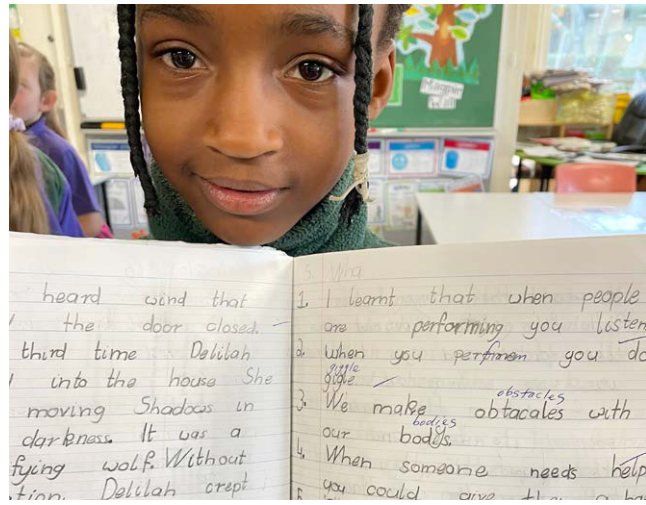 Magpie
Wall
heard wind that
the door closed.
third time Delilah
into the house She
moving Shadows in
darkness. It was a
fying wolf. Without
tion, Delilah crept
1. I learnt that when people
are performing you listen
2. When you you do
giggle
gigle
obstacles
3. We make obtacales with
bodies
our bodys.
4. When someone needs help
you could give